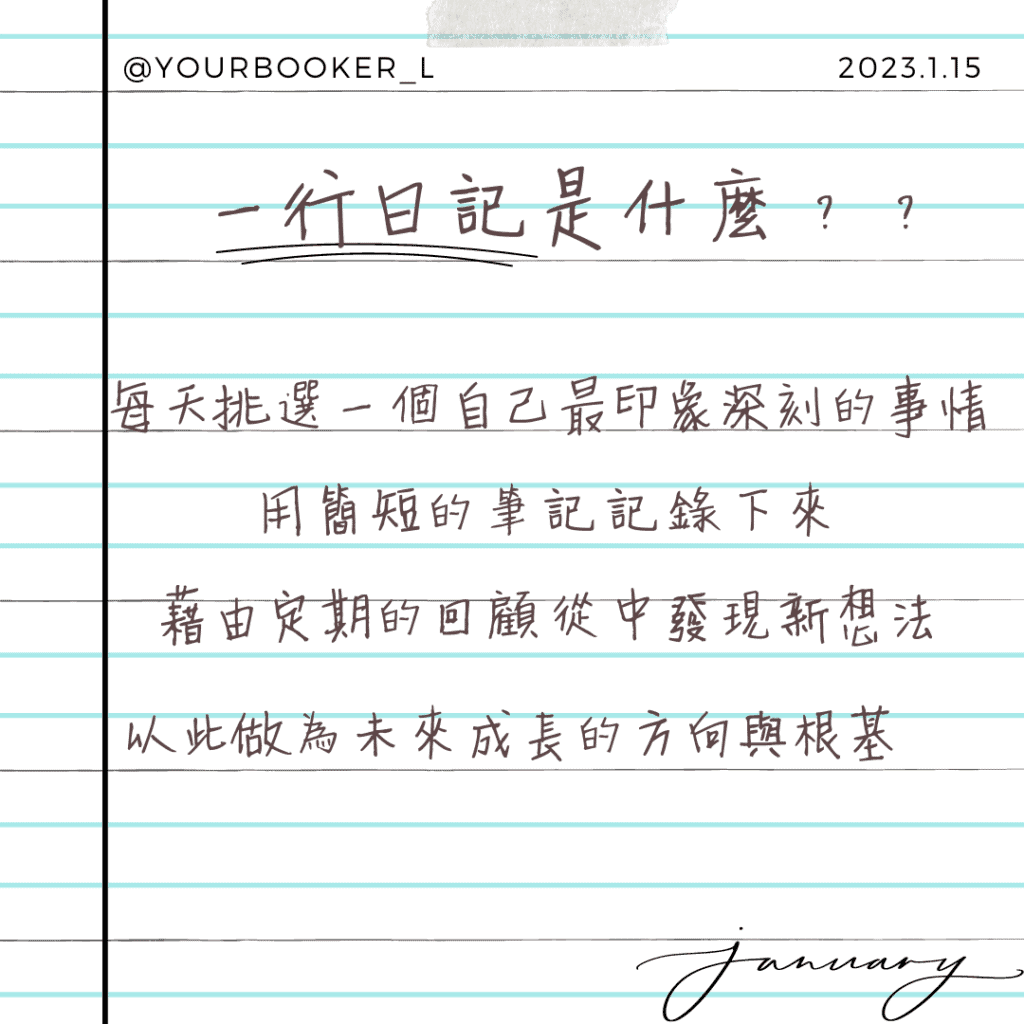 @YOURBOOKER_L 2023.1.15
一行日記是什麼？？
每天挑選一個自己最印象深刻的事情
用簡短的筆記記錄下來
藉由定期的回顧從中發現新想法
以此做為未來成長的方向與根基
january